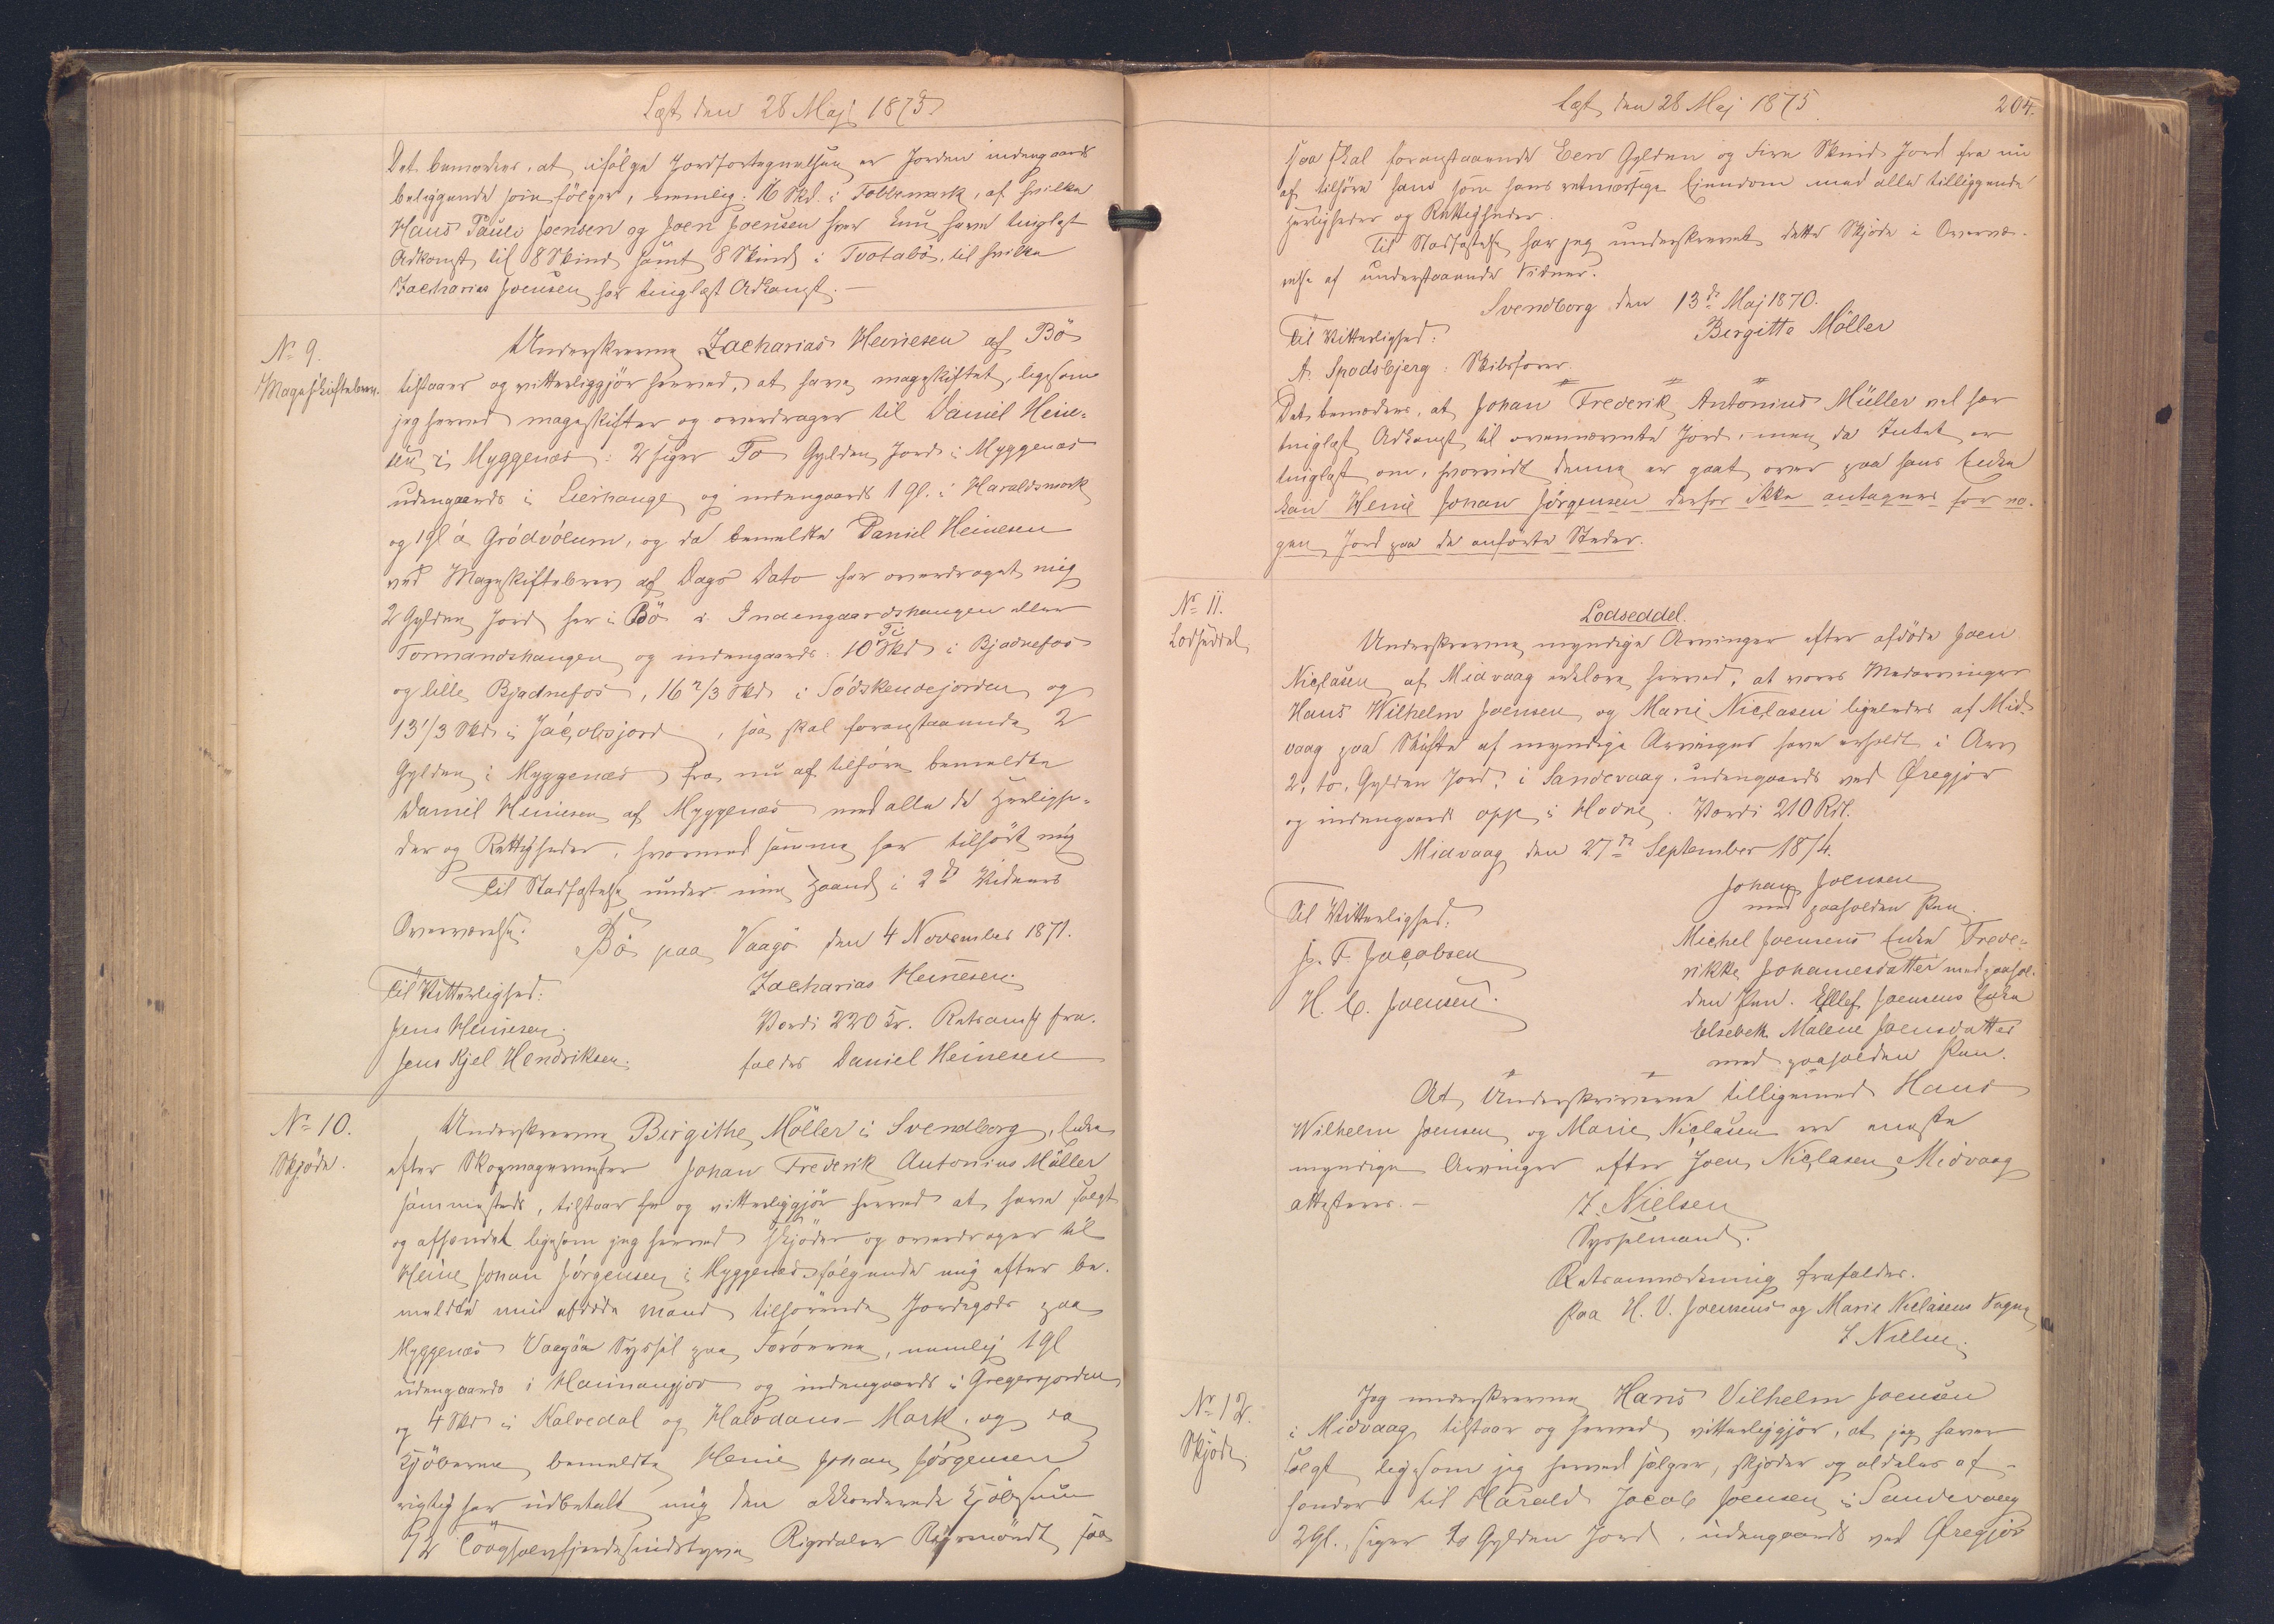 Lest den 28 Maj 1875
Det bemærkes, at ifölge Jordfortegnelsen er Jorden indengaards
beliggende som fölger, nemlig: 16 Skd. i Tollemark, af hvilke
Hans Pauli Joensen og Joen Joensen hver kun have tinglæst
Adkomst til 8 Skind, samt 8 Skind i Tvotabö, til hvilke
Zacharias Joensen har tinglæst Adkomst.—
No 9.
Mageskiftebrev.
Underskrevne Zacharias Heinesen af Bö
tilstaaer og vitterliggjör herved, at have mageskiftet, ligesom
jeg herved mageskifter og overdrager til Daniel Heine-
sen i Myggenæs: 2 siger To Gylden Jord i Myggenæs
udengaards i Lierhauge og indengaards 1 Gl. i Haraldsmark
og 1 Gl á Gródvólum, og da bemeldte Daniel Heinesen
ved Mageskiftebrev af Dags Dato har overdraget mig
2 Gylden Jord her i Bö i Indengaardshaugen eller
Tormandshaugen og indengaards: 10 Ti Skd i Bjadnefos
og lille Bjadnefos, 16 2/3 Skd i Södskendejorden og
13 1/3 Skd i Jácobsjord, saa skal foranstaaende 2
Gylden i Myggenæs fra nu af tilhöre bemeldte
Daniel Heinesen af Myggenæs med alle de Herlighe-
der og Rettigheder, hvormed samme har tilhört mig
Til Stadfæstelse under min Haand i 2de Vidners
Overværelse.
Bö paa Vaagö den 4 November 1871.
Til Vitterlighed:
Zacharias Heinesen.
Jens Heinesen.
Værdi 220 Kr. Retsanm fra-
Jens Kjel Hendriksen.
faldes Daniel Heinesen
No 10.
Skjöde.
Underskrevne Birgithe Möller i Svendborg, Enke
efter Skomagermester Johan Frederik Antonius Müller
sammesteds, tilstaar her og vitterliggjör herved at have solgt
og afhændet ligesom jeg herved skjöder og overdrager til
Heine Johan Jörgensen i Myggenæs fölgende mig efter be-
meldte min afdöde Mand tilhörende Jordegods paa
Myggenæs Vaagöe Syssel paa Færöerne, nemlig 1 Gl
udengaards i Hannangjov og indengaards i Gregersjorden
og 4 Skd i Kalvedal og Halvdans-Mark, og da
Kjöberen bemeldte Heine Johan Jörgensen
rigtig har udbetalt mig den akkorderede Kjöbesum
72 Tooghalvfjerdesindstyve Rigsdaler Rigsmöndt, saa
Lest den 28 Maj 1875
204.
saa skal foranstaaende Een Gylden og Fire Skind Jord fra nu
af tilhöre ham som hans retmæssige Ejendom med alle tilliggende
Herligheder og Rettigheder.
Til Stadfæstelse har jeg underskrevet dette Skjöde i Overvæ-
relse af understaaende Vidner.
Svendborg den 13de Maj 1870.
Til Vitterlighed:
Birgitte Möller
A. Spodsbjerg: Skibsförer.
Det bemærkes, at Johan Frederik Antonius Müller vel har
tinglæst Adkomst til ovennævnte Jord, men da Intet er
tinglæst om, hvorvidt denne er gaaet over paa hans Enke
kan Heine Johan Jörgensen derfor ikke antagnes for no-
gen Jord paa de anförte Steder.
No 11.
Lodseddel
Lodseddel.
Underskrevne myndige Arvinger efter afdöde Joen
Niclasen af Midvaag erklære herved, at vores Medarvinger
Hans Wilhelm Joensen og Marie Niclasen ligeledes af Mid-
vaag paa Skifte af myndige Arvinger have erholdt i Arv
2, to, Gylden Jord, i Sandevaag, udengaards ved Øregjov
og indengaards opp i Hodne. Værdi 210 Rdl.
Midvaag den 27de September 1874.
Johan Joensen
Til Vitterlighed:
med paaholden Pen.
J. F. Jacobsen
Michel Joensens Enke Frede-
rikke Johannesdatter med paahol-
H. C. Joensen.
den Pen. Ellef Joensens Enke
Elsebeth Malene Joensdatter
med paaholden Pen.
At Underskriverne tilligemed Hans
Wilhelm Joensen og Marie Niclasen ere eneste
myndige Arvinger efter Joen Niclasen, Midvaag
attesteres.—
J. Nielsen
Sysselmand.
Retsanmærkning frafaldes.
Paa H. V. Joensens og Marie Niclasens Vegne
J Nielsen.
No 12.
Skjöde
Jeg underskrevne Hans Vilhelm Joensen
i Midvaag tilstaar og herved vitterliggjör, at jeg haver
solgt ligesom jeg herved sælger, skjöder og aldeles af-
hænder til Harald Jacob Joensen i Sandevaag
2 Gl., siger to Gylden Jord, udengaards ved Øregjov